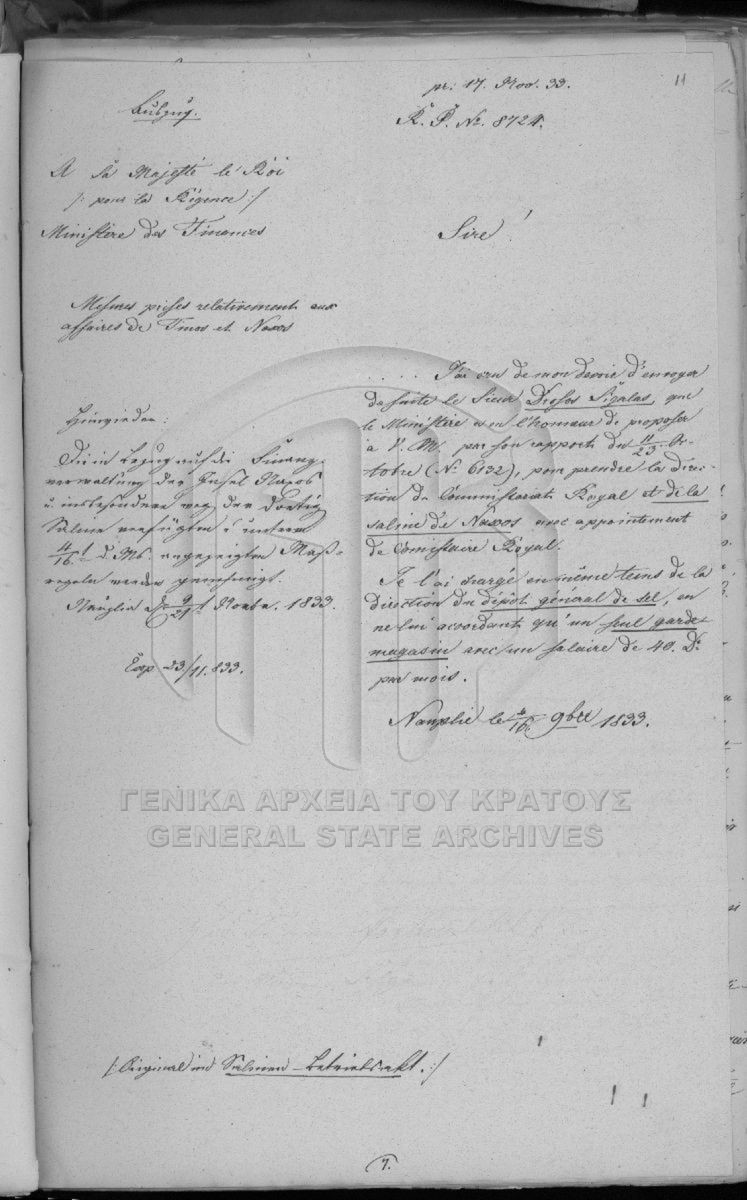 pr: 17. Nov. 33.
11
Auszug.
K. P. No. 8724.
A Sa Majesté le Roi
/: pour la Régence :/
Ministère des Finances
Sire!
Mesures prises relativement aux
affaires de Tinos et Naxos
. . . . J'ai cru de mon devoir d'envoyer
de suite le Sieur Drosos Sigalas, que
le Ministère a eu l'honneur de proposer
à V. M. par son rapport du 11/23 Oc-
tobre (No. 6132), pour prendre la direc-
tion du Commissariat Royal et de la
saline de Naxos avec appointement
de Comissaire Royal.
Je l'ai chargé en même tems de la
direction du dépôt général de sel, en
ne lui accordant qu'un seul garde-
magasin avec un salaire de 40. Dr.
par mois.
Nauplie le 4/16 9bre 1833.
Die in Bezug auf die Finanz-
verwaltung der Insel Naxos
u. insbesondere weg. der dortig.
Saline verfügten u. unterm
4/16 d. Ms. angezeigten Maß-
regeln werden genehmigt.
Nauplia d. 9/21 Novbr. 1833.
Exp. 23/11. 833.
/: Original im Salinen-Betriebsakt. :/
7.
ΓΕΝΙΚΑ ΑΡΧΕΙΑ ΤΟΥ ΚΡΑΤΟΥΣ
GENERAL STATE ARCHIVES